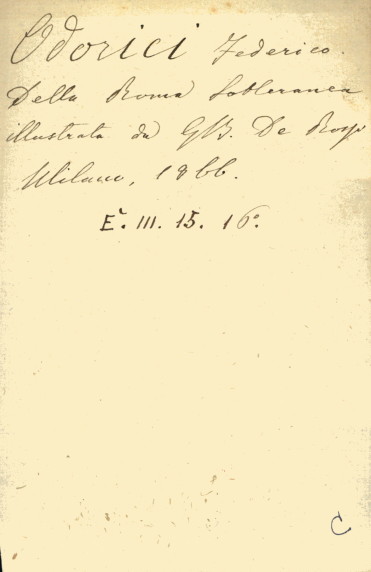 Odorici Federico.
Della Roma Sotteranea
illustrata da GB. De Rossi
Milano, 1866.
E. III. 15. 16°.
C